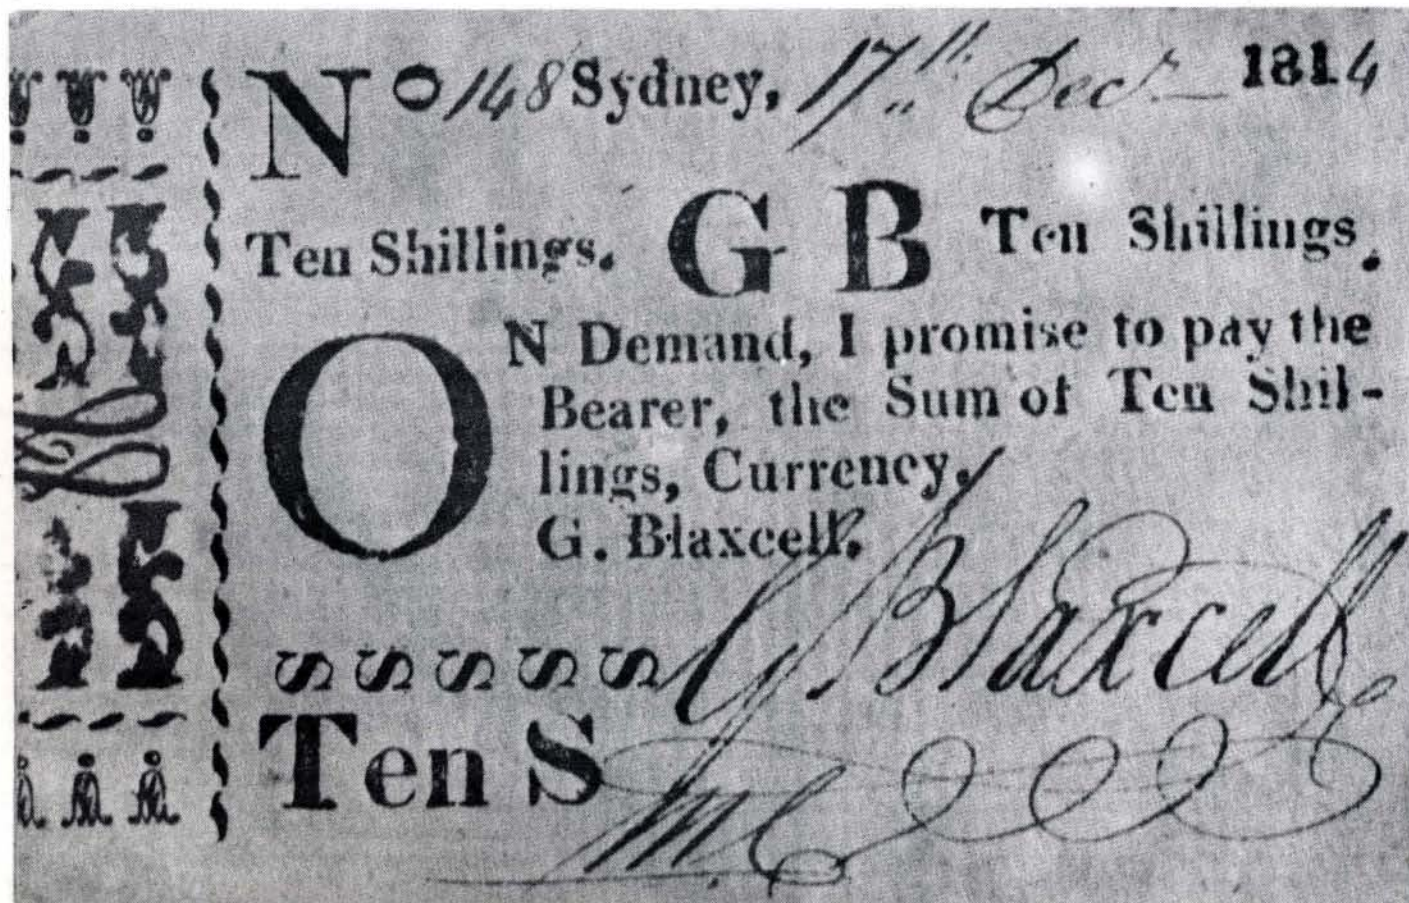 No 148 Sydney, 17th Decr 1814
Ten Shillings. G B Ten Shillings.
ON Demand, I promise to pay the
Bearer, the Sum of Ten Shil-
lings, Currency.
G. Blaxcell.
S S S S S G. Blaxcell
Ten S